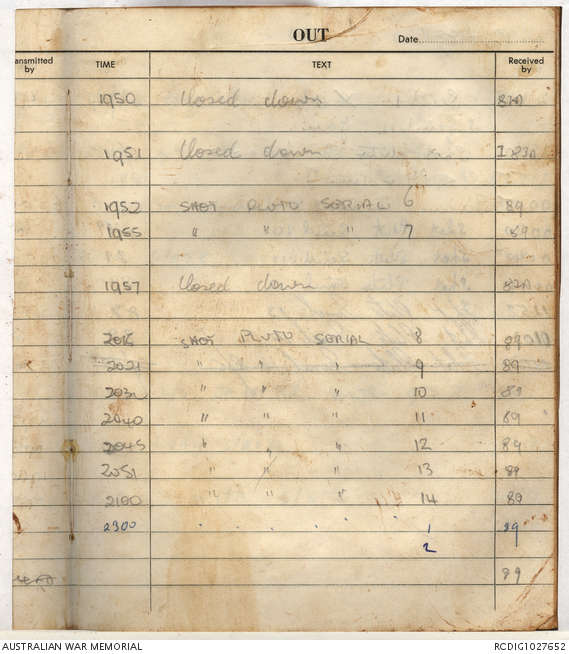 OUT
Date
ansmitted by TIME TEXT Received by
1950 Closed down 82A
1951 Closed down I 83A
1952 SHOT PLUTO SERIAL 6 89
1955 " " " 7 89
1957 Closed down 82A
2015 SHOT PLUTO SERIAL 8 89
2021 " " " 9 89
203 " " " 10 89
2040 " " " 11 89
2045 " " " 12 89
2051 " " " 13 89
2100 " " " 14 89
2300 " " " " 1 89
2
89
AUSTRALIAN WAR MEMORIAL RCDIG1027652